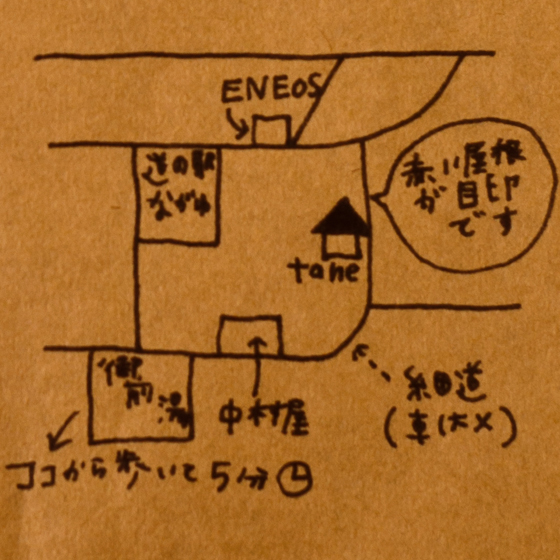 ENEOS
道の駅
ながゆ
赤い屋根
が目印
です
tane
御
前
湯
中村屋
細道
(車は×)
ココから歩いて5分